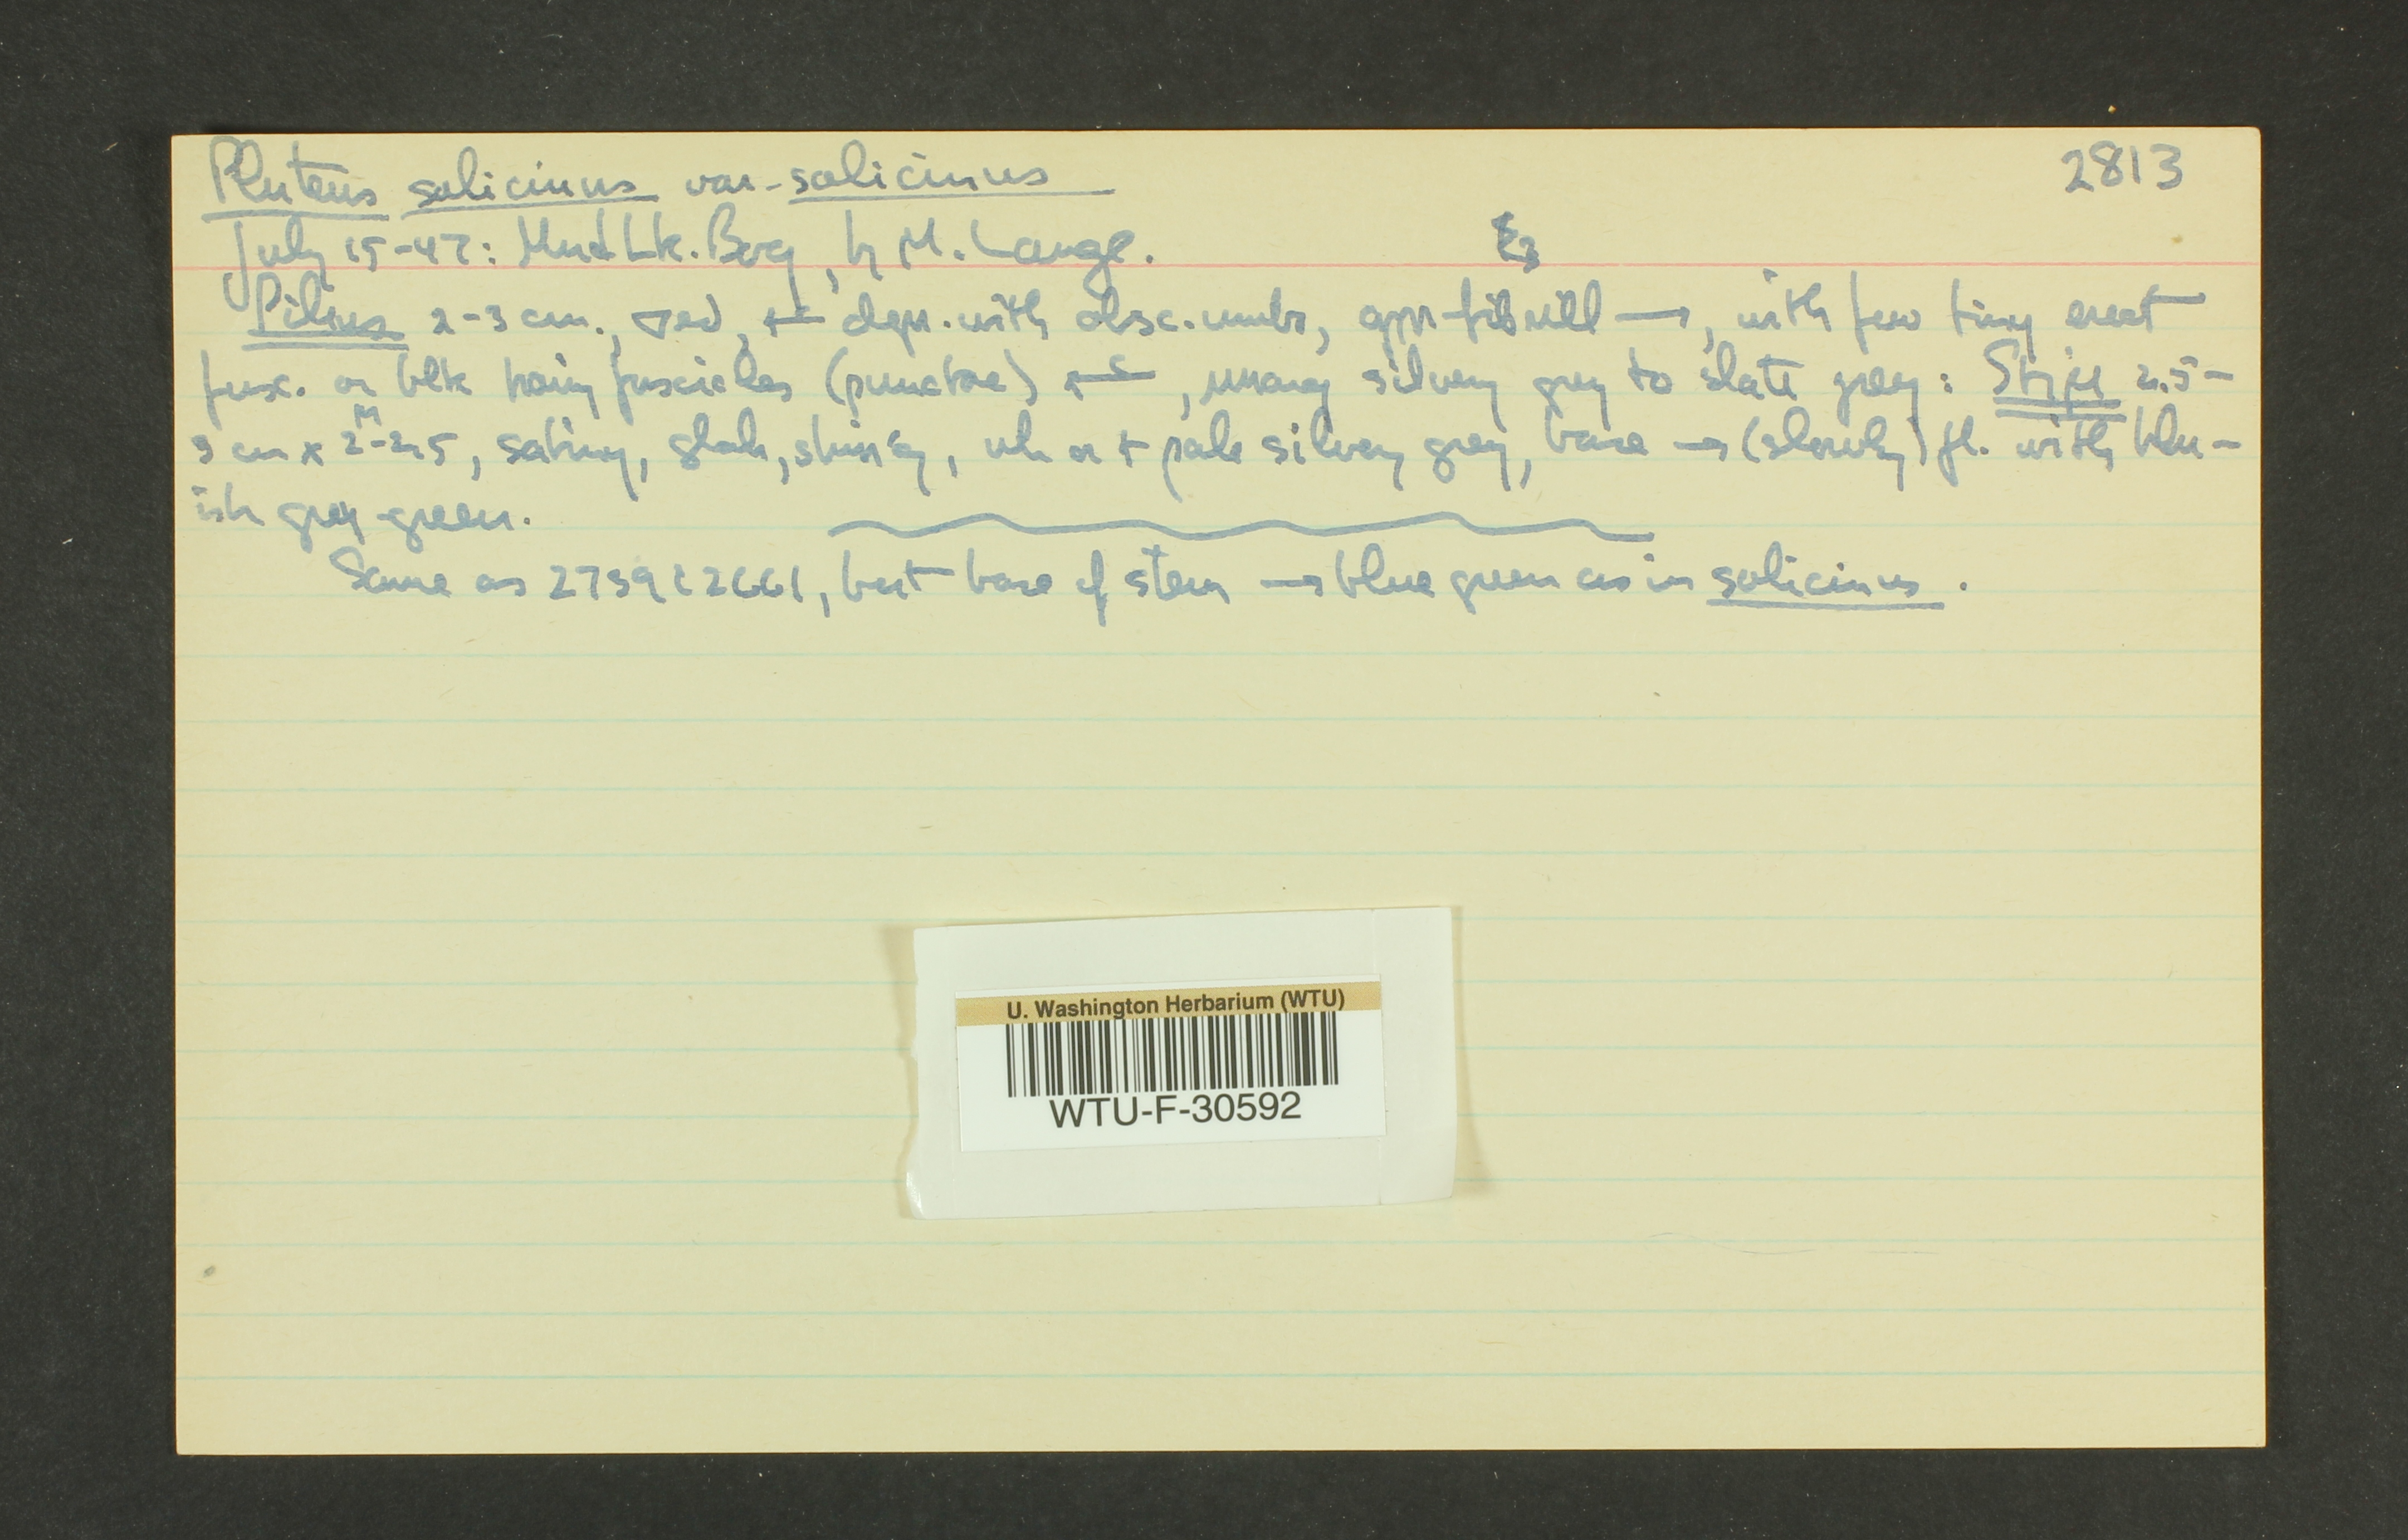 Pluteus salicinus var. salicinus 2813
July 15-47: Mud Lk. Bog, by M. Lange.
Pileus 2-3 cm., depr. with obsc. umbo, appr fibrill →, with few tiny erect
fusc. or blk hairy fascicles (punctae), silvery grey to slate grey: Stipe 2.5-
3 cm x 2-2.5, satiny, glab, shining, wh or ± pale silvery grey, base → (slowly) fl. with blu-
ish grey-green.
Same as 2739 & 2661, but base of stem → blue green as in salicinus.
U. Washington Herbarium (WTU)
WTU-F-30592